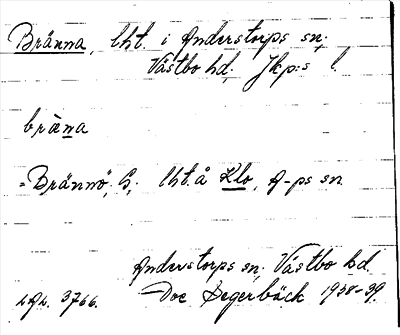 Bränna, lht. i Anderstorps sn;
Västbo hd. Jkp:s l.
bräna
=Brännö, S; lht. å Klo, A-ps sn
Anderstorps sn; Västbo hd.
3766. Doc Segerbäck 1938-39.